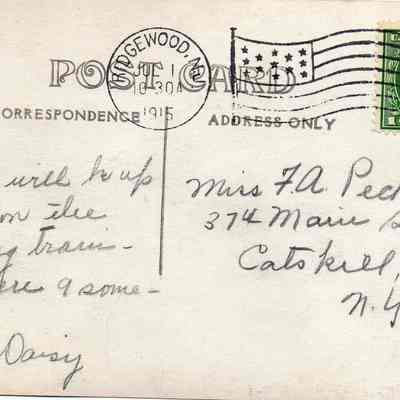 RIDGEWOOD, N.J.
JUL 1
10-30A
1915
POST CARD
ORRESPONDENCE
ADDRESS ONLY
will be up
on the
g train -
ere 9 some -
Daisy
Miss F. A. Peck
374 Main S
Catskill,
N.Y.